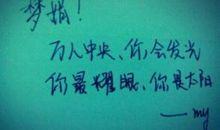 梦娟!
万人中央、你会发光
你最耀眼、你是太阳
——my